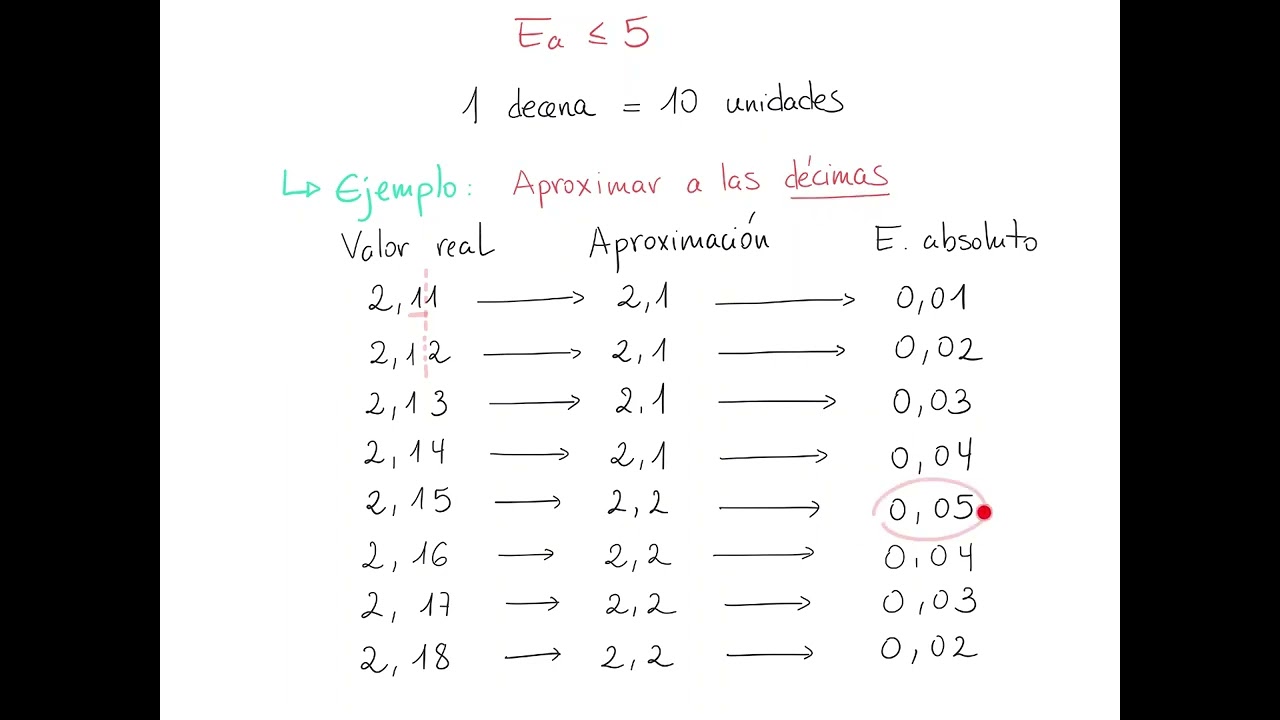 Ea ≤ 5
1 decena = 10 unidades
↳ Ejemplo: Aproximar a las décimas
Valor real Aproximación E. absoluto
2,11 → 2,1 → 0,01
2,12 → 2,1 → 0,02
2,13 → 2.1 → 0,03
2,14 → 2,1 → 0,04
2,15 → 2,2 → 0,05
2,16 → 2,2 → 0,04
2,17 → 2,2 → 0,03
2,18 → 2,2 → 0,02